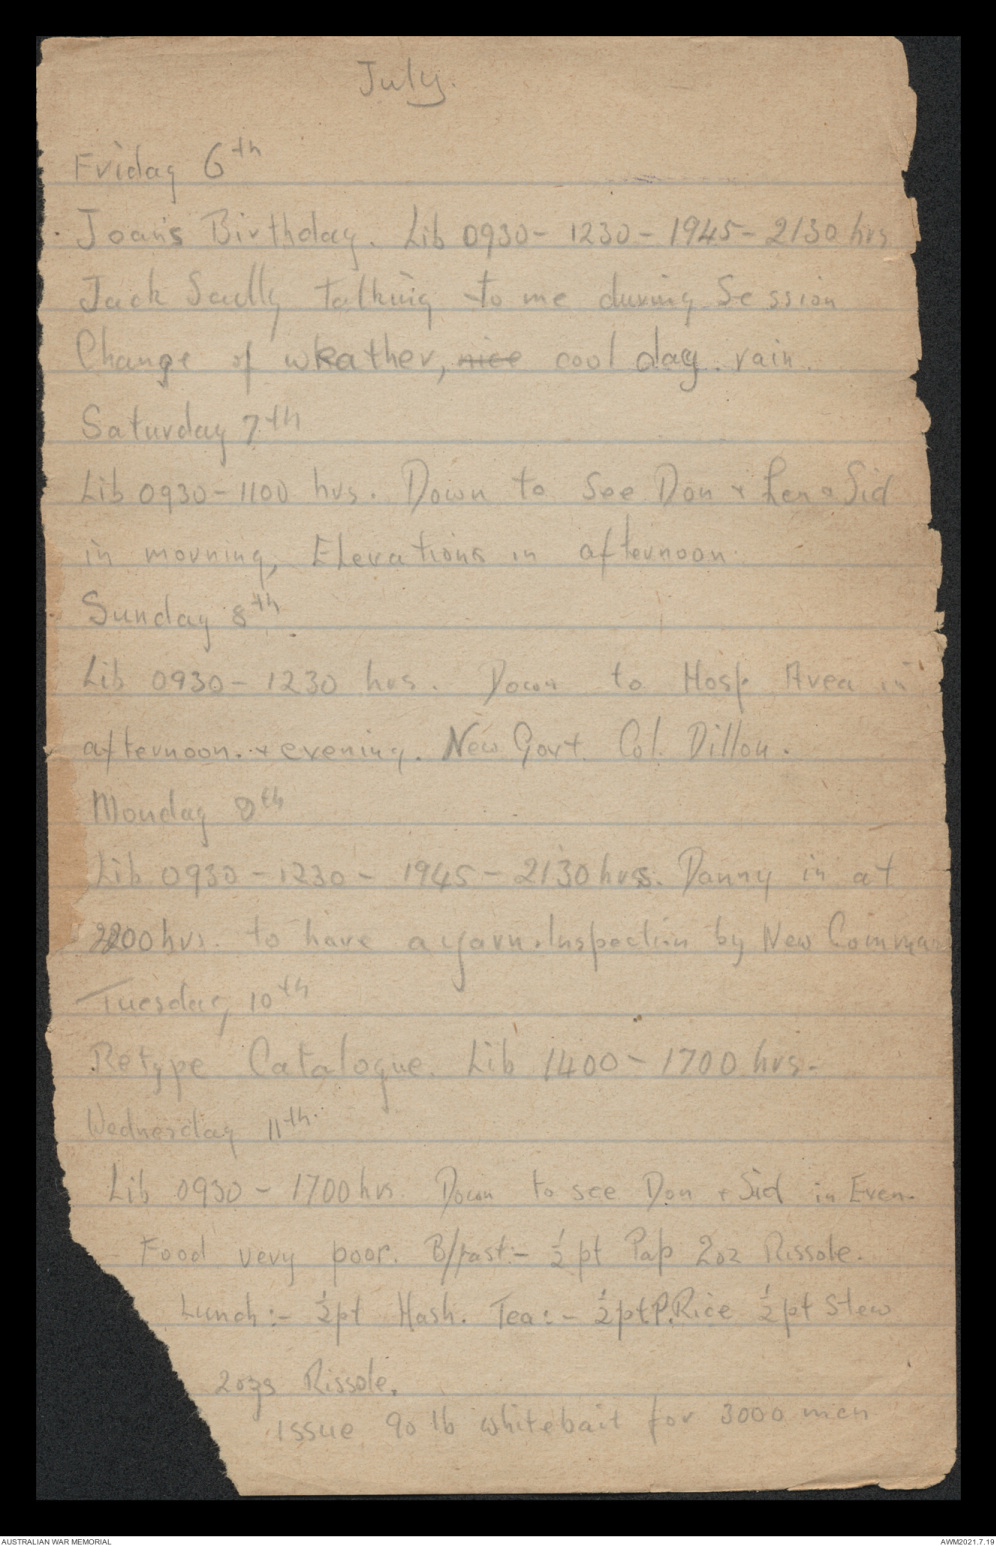 July.
Friday 6th
Joan's Birthday. Lib 0930- 1230 - 1945- 2130 hrs
Jack Scully talking to me during Session
Change of weather, nice cool day. rain.
Saturday 7th
Lib 0930-1100 hrs. Down to see Don + Len + Sid
in morning, Elevations in afternoon.
Sunday 8th
Lib 0930- 1230 hrs. Down to Hosp Area in
afternoon. + evening. New Govt. Col. Dillon.
Monday 9th
Lib 0930 - 1230 - 1945 - 2130 hrs. Danny in at
2200 hrs. to have a yarn. Inspection by New Comman
Tuesday 10th
Retype Catalogue. Lib 1400 - 1700 hrs.
Wednesday 11th.
Lib 0930 - 1700 hrs. Down to see Don + Sid in Even.
Food very poor. B/fast:- ½ pt Pap 2oz Rissole.
Lunch:- ½pt Hash. Tea:- ½pt P.Rice ½pt Stew
2ozs Rissole.
issue 90 lb whitebait for 3000 men
AUSTRALIAN WAR MEMORIAL
AWM2021.7.19